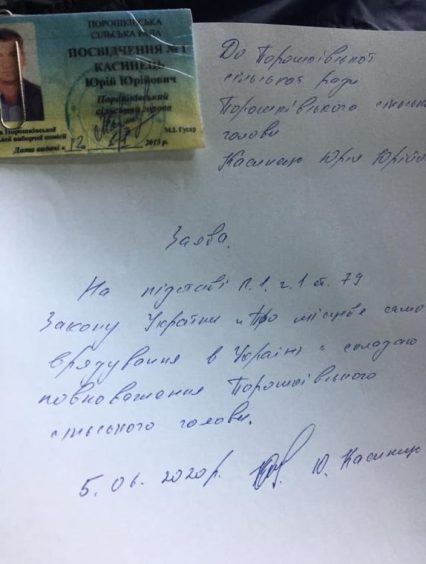 ПОРОШКІВСЬКА
СІЛЬСЬКА РАДА
ПОСВІДЧЕННЯ № 1
КАСИНЕЦЬ
Юрій Юрійович
Порошківський
сільський голова
а Порошківської
ої виборчої комісії
М.І. Гусар
Дата видачі « 12 2015 р.
До Порошківської
сільської ради
Порошківського сільськ
голови
Касинець Юрія Юрійов
Заява.
На підставі п.1. ч.1 ст. 79
Закону України „Про місцеве само
врядування в Україні" складаю
повноваження Порошківського
сільського голови.
5.06.2020р. Ю. Касинець